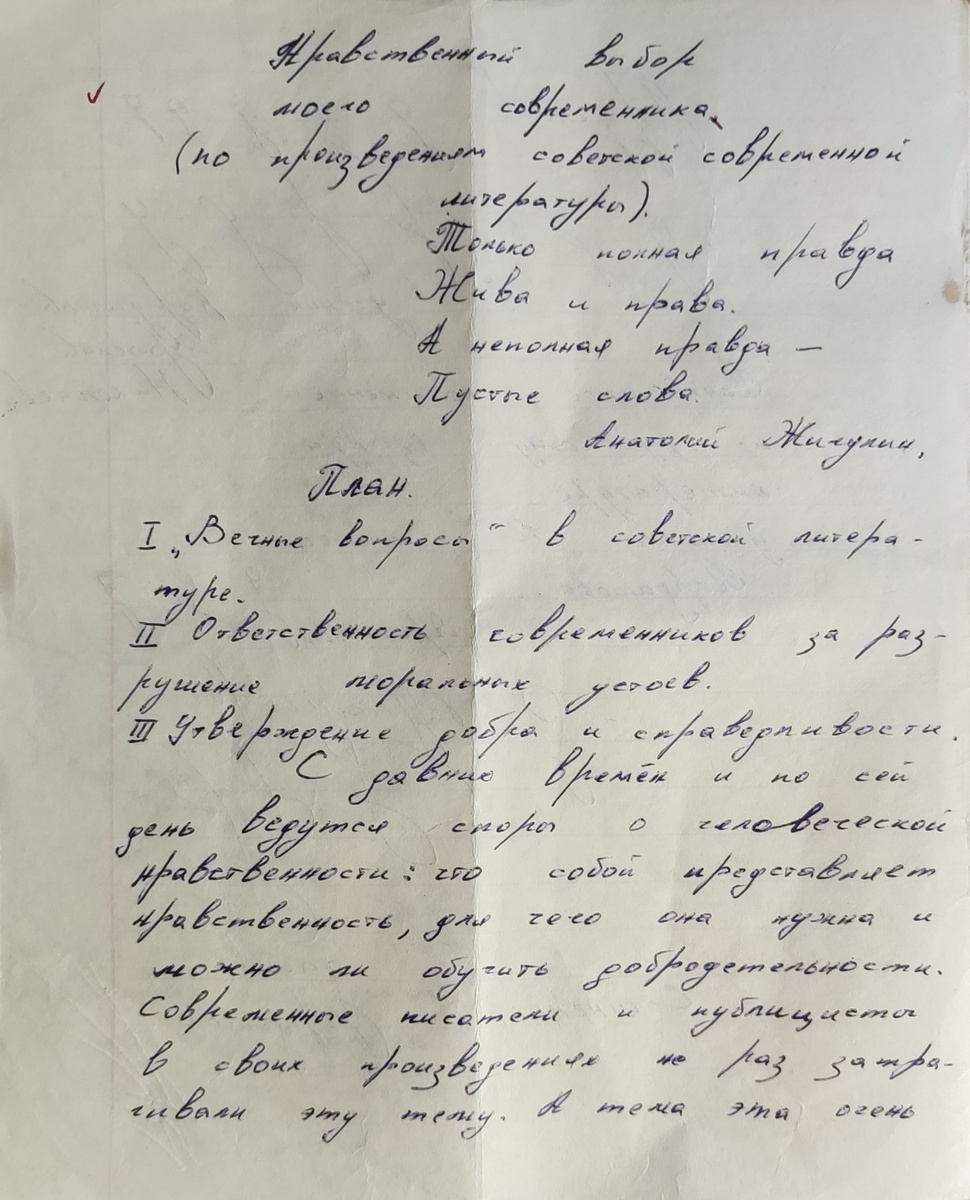 Нравственный выбор
моего современника.
(по произведениям советской современной
литературы).
Только полная правда
Жива и права.
А неполная правда —
Пустые слова.
Анатолий Жигулин.
План.
I „Вечные вопросы“ в советской литера-
туре.
II Ответственность современников за раз-
рушение моральных устоев.
III Утверждение добра и справедливости.
С давних времён и по сей
день ведутся споры о человеческой
нравственности: что собой представляет
нравственность, для чего она нужна и
можно ли обучить добродетельности.
Современные писатели и публицисты
в своих произведениях не раз затра-
гивали эту тему. А тема эта очень